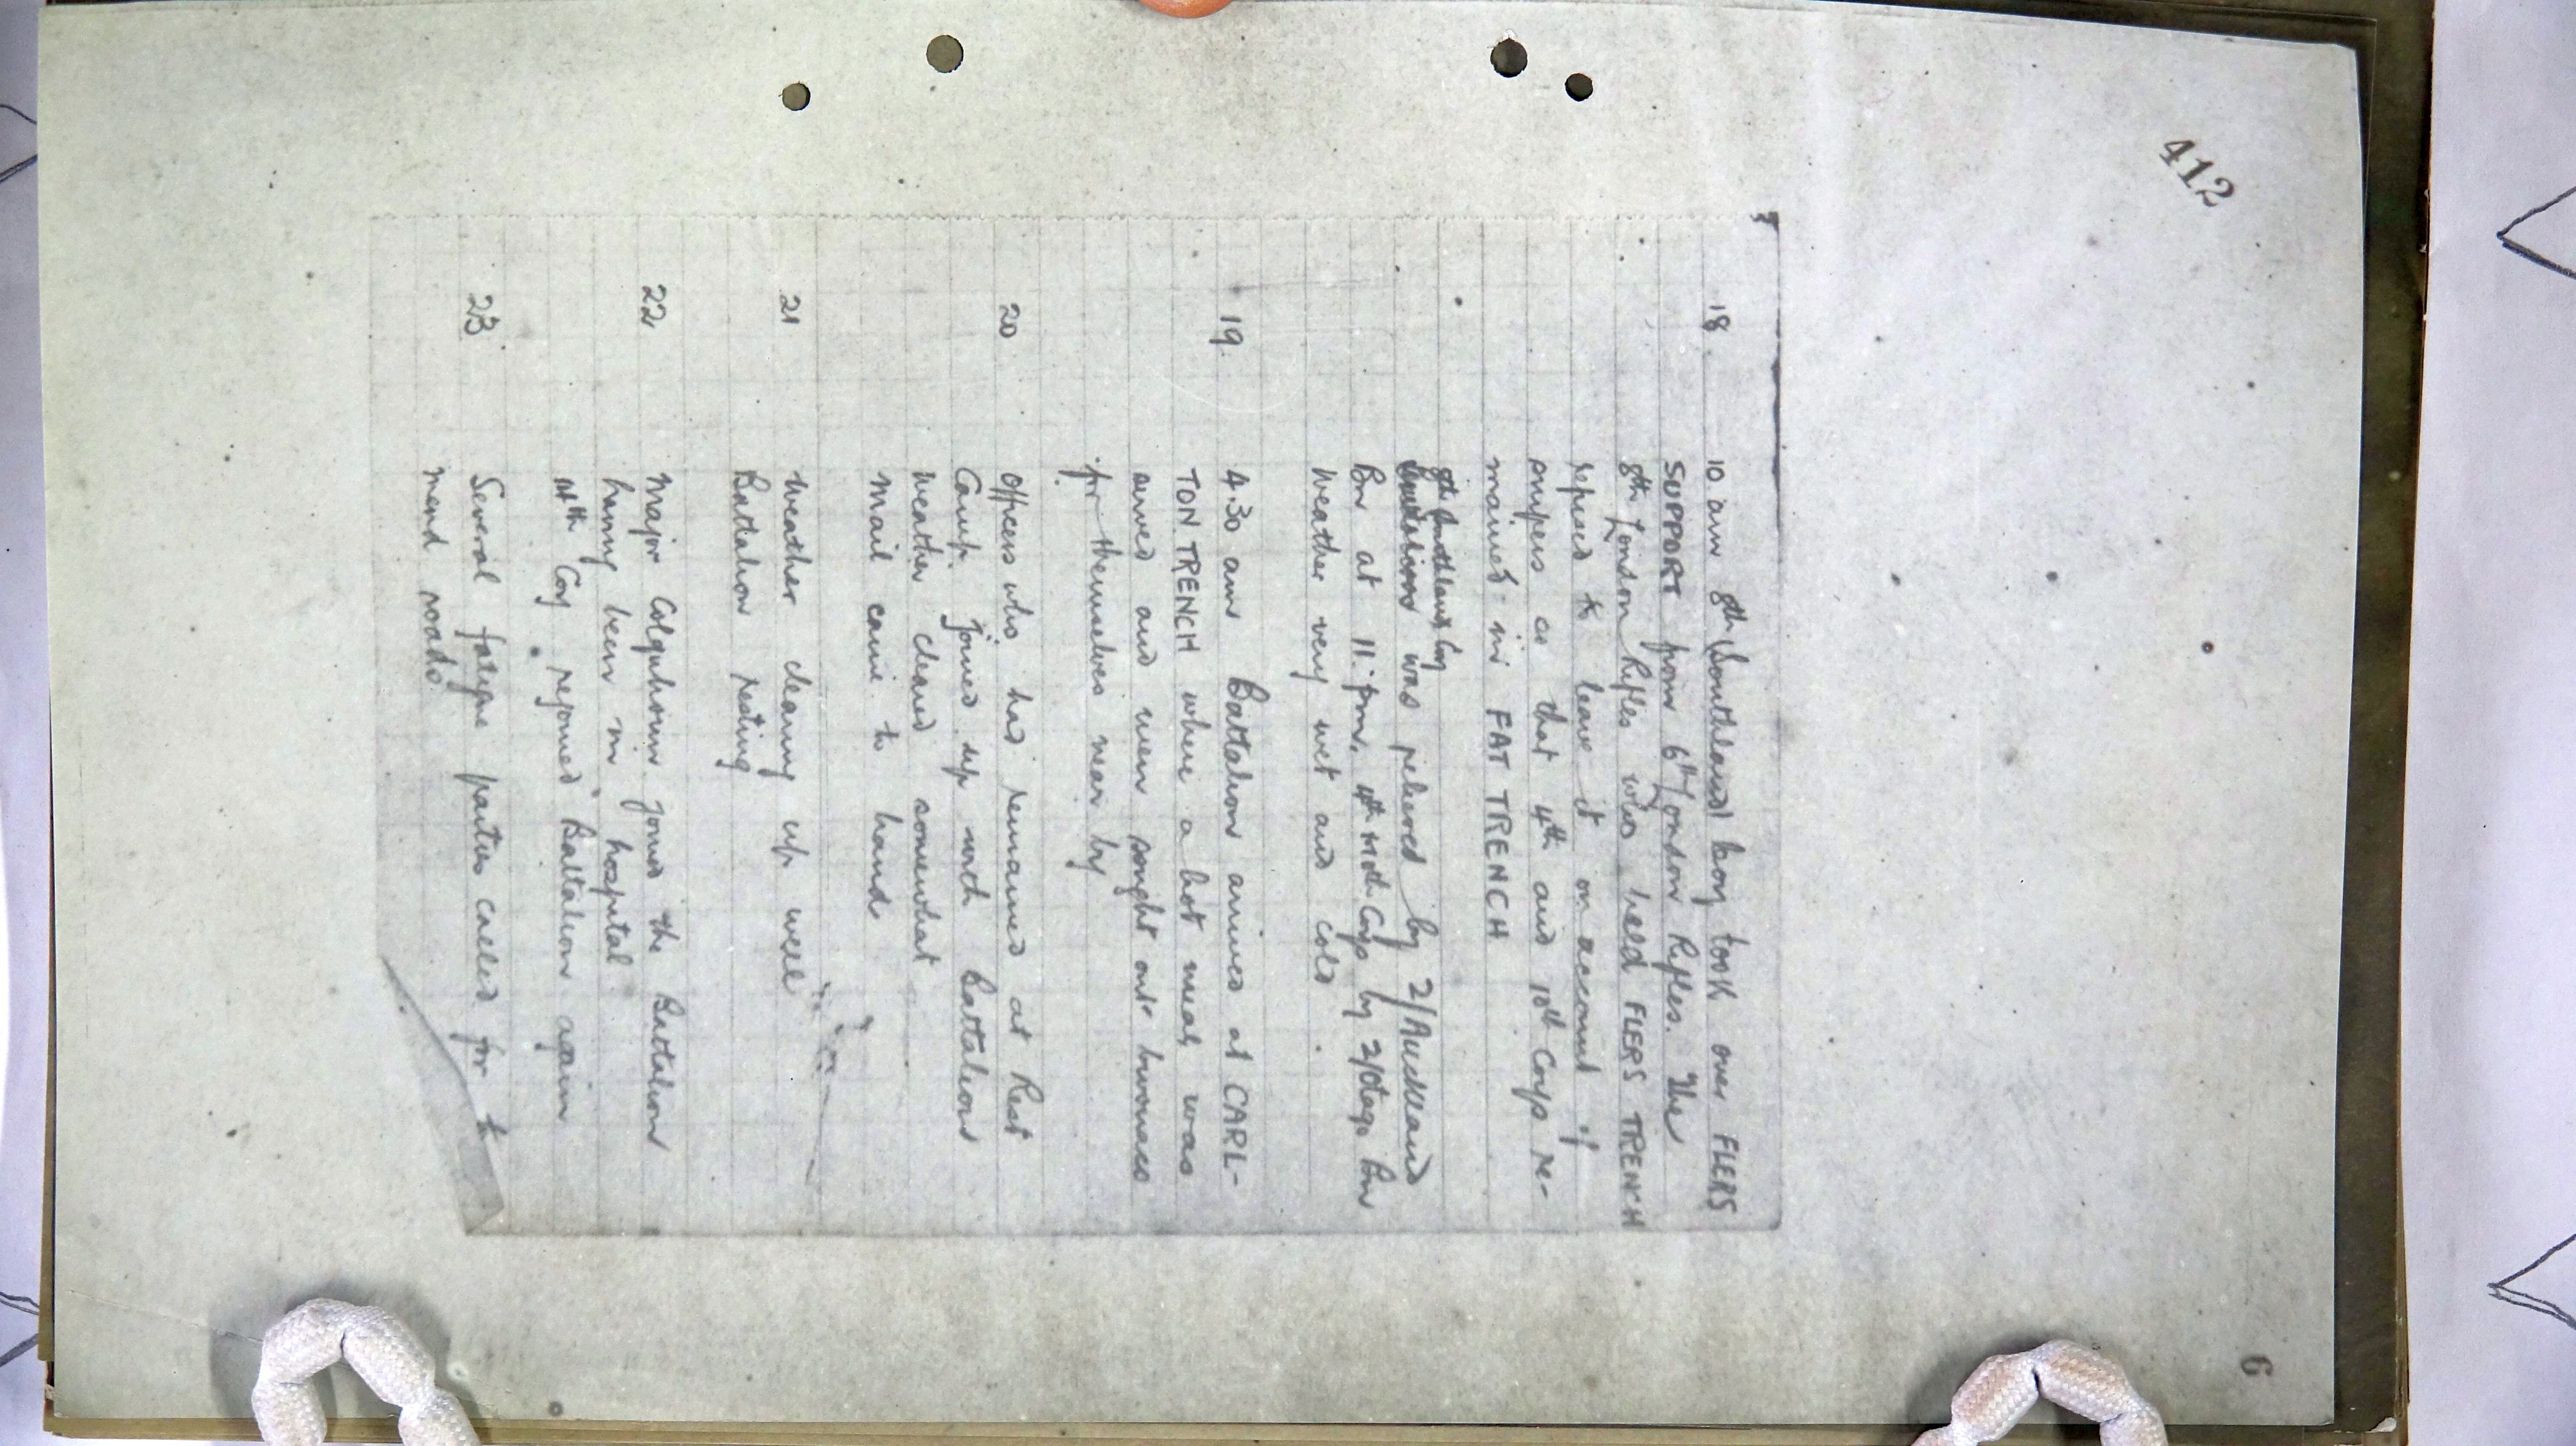 412
6
18. 10 am 8th (Southland) Coy took over FLERS
SUPPORT from 6th London Rifles. The
8th London Rifles who held FLERS TRENCH
refused to leave it on account of
snipers so that 4th and 10th Coys re-
mained in FAT TRENCH
8th Southland Coy
was relieved by 2/Auckland
Bn at 11. pm. 4th & 10th Coys by 2/Otago Bn
Weather very wet and cold.
19. 4.30 am Battalion arrived at CARL-
TON TRENCH where a hot meal was
served and men sought out bivouacs
for themselves near by
20 Officers who had remained at Rest
Camp. joined up with Battalion
Weather cleared somewhat
Mail came to hand
21 Weather clearing up well
Battalion resting
22 Major Colquhoun joined the Battalion
having been in hospital
14th Coy rejoined Battalion again
23 Several fatigue parties called for to
mend roads.